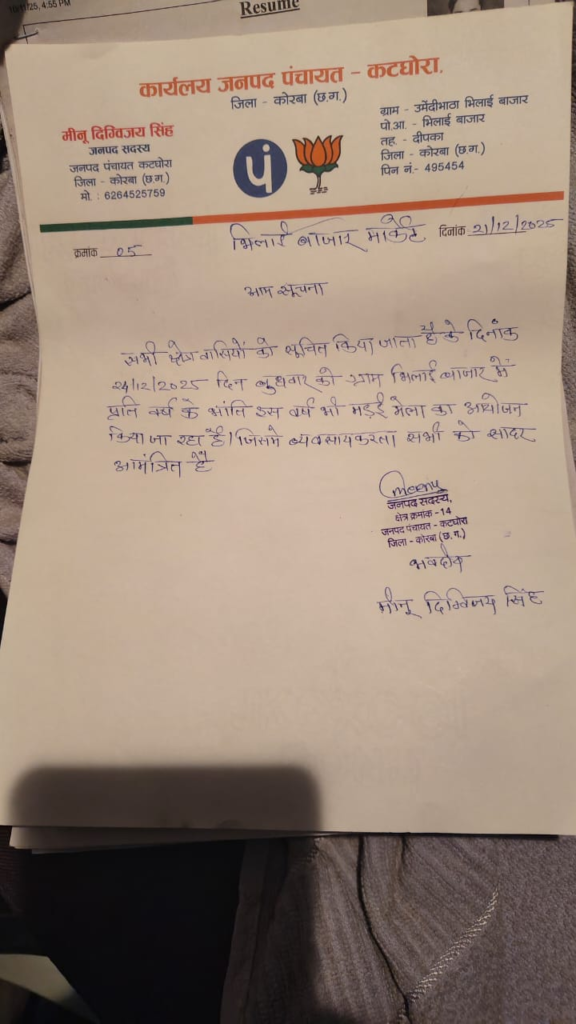 25, 4:55 PM
Resume
कार्यलय जनपद पंचायत - कटघोरा.
जिला - कोरबा (छ.ग.)
मीनू दिग्विजय सिंह
जनपद सदस्य
जनपद पंचायत कटघोरा
जिला - कोरबा (छ.ग.)
मो. : 6264525759
पं
ग्राम - उमेंदीभाठा भिलाई बाजार
पो.आ. - भिलाई बाजार
तह. - दीपका
जिला - कोरबा (छ.ग.)
पिन नं.- 495454
क्रमांक 05
भिलाई बाजार मार्केट
दिनांक 21/12/2025
आम सूचना
सभी क्षेत्र वासियों को सूचित किया जाता है के दिनांक
24/12/2025 दिन बुधवार को ग्राम भिलाई बाजार में
प्रति वर्ष के भांति इस वर्ष भी मड़ई मेला का आयोजन
किया जा रहा है। जिसमे व्यवसायकरता सभी को सादर
आमंत्रित है
Meenu
जनपद सदस्य,
क्षेत्र क्रमांक - 14
जनपद पंचायत - कटघोरा
जिला - कोरबा (छ.ग.)
भवदीय
मीनू दिग्विजय सिंह